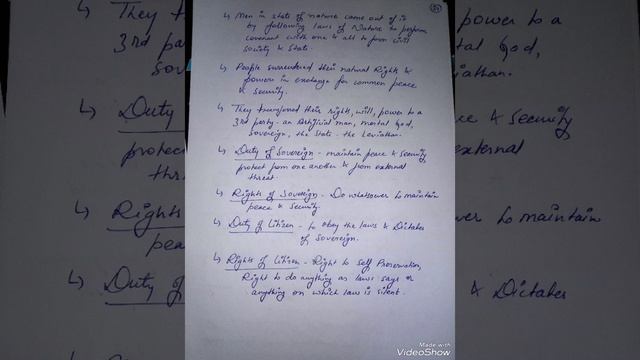 ↳ Men in state of nature came out of it
by following laws of Nature to perform
covenant with one & all to form civil
society & State.
↳ People surrendered their natural Rights &
powers in exchange for common peace
& security.
↳ They transferred their right, will, power to a
3rd party - an Artificial man, mortal God,
sovereign, the State - the Leviathan.
↳ Duty of Sovereign - maintain peace & security
protect from one another & from external
threat.
↳ Rights of Sovereign - Do whatsower to maintain
peace & security.
↳ Duty of Citizen - to obey the laws & Dictates
of Sovereign.
↳ Rights of Citizen - Right to Self Preservation
Right to do anything as laws says or
anything on which law is silent.
Made with
VideoShow